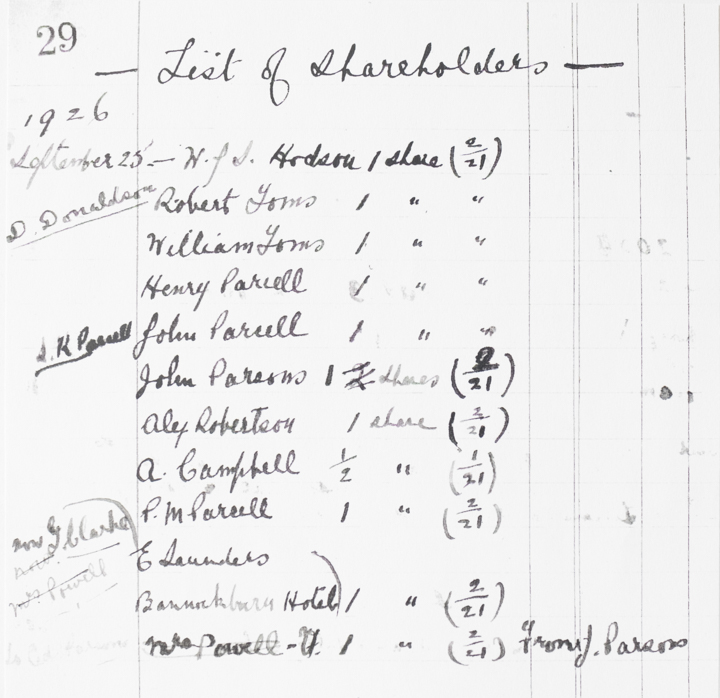 29
— List of Shareholders —
1926
September 25 — W. J. S. Hodson 1 share (2/21)
D. Donaldson Robert Toms 1 " "
William Toms 1 " "
Henry Parcell 1 " "
J. K Parcell John Parcell 1 " "
John Parsons 1 shares (2/21)
Alex Robertson 1 share (2/21)
A. Campbell 1/2 " (1/21)
P. M Parcell 1 " (2/21)
now J Clarke
E Saunders
Mrs Powell
Bannockburn Hotel 1 " (2/21)
Mrs Powell 1 " (2/21) From J. Parsons